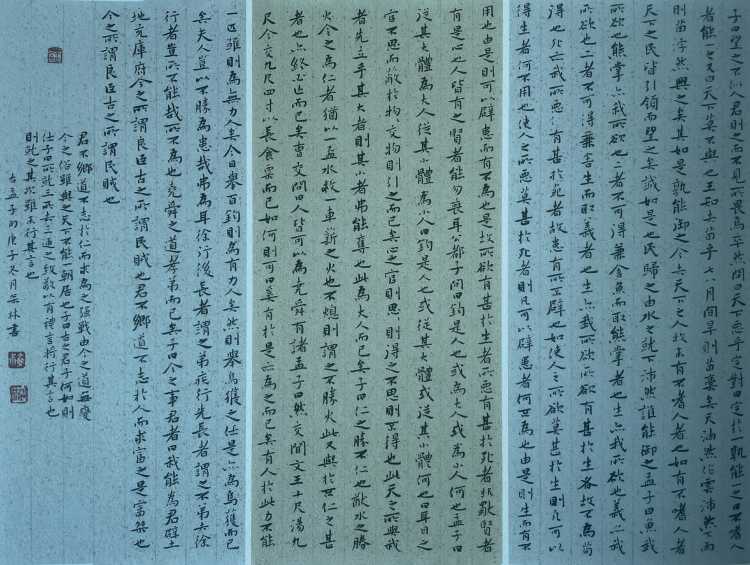 子曰望之不似人君則之而不見所畏焉卒然問曰天下惡乎定對曰定於一孰能一之曰不嗜人
者能一之又曰天下莫不與也王知夫苗乎七八月間旱則苗槁矣天油然作雲沛然下雨
則苗浡然興之矣其如是孰能御之今夫天下之人牧未有不嗜人者也如有不嗜人者
天下之民皆引領而望之矣誠如是也民歸之由水之就下沛然誰能御之孟子曰魚我
所欲也熊掌亦我所欲也二者不可得兼舍魚而取熊掌者也生亦我所欲也義亦我
所欲也二者不可得兼舍生而取義者也生亦我所欲所欲有甚於生者故不為苟
得也死亦我所惡所惡有甚於死者故患有所不辟也如使人之所欲莫甚於生則凡可以
得生者何不用也使人之所惡莫甚於死者則凡可以辟患者何不為也由是則生而有不
用也由是則可以辟患而有不為也是故所欲有甚於生者所惡有甚於死者非獨賢者
有是心也人皆有之賢者能勿喪耳公都子問曰鈞是人也或為大人或為小人何也孟子曰
從其大體為大人從其小體為小人曰鈞是人也或從其大體或從其小體何也曰耳目之
官不思而蔽於物物交物則引之而已矣心之官則思思則得之不思則不得也此天之所與我
者先立乎其大者則其小者弗能奪也此為大人而已矣孟子曰仁之勝不仁也猶水之勝
火今之為仁者猶以一杯水救一車薪之火也不熄則謂之不勝火此又與於不仁之甚
者也亦終必亡而已矣曹交問曰人皆可以為堯舜有諸孟子曰然交聞文王十尺湯九
尺今交九尺四寸以長食粟而已如何則可曰奚有於是亦為之而已矣有人於此力不能
一匹雛則為無力人矣今日舉百鈞則為有力人矣然則舉烏獲之任是亦為烏獲而已
矣夫人豈以不勝為患哉弗為耳徐行後長者謂之弟疾行先長者謂之不弟夫徐
行者豈所不能哉所不為也堯舜之道孝弟而已矣孟子曰今之事君者曰我能為君辟土
地充庫府今之所謂良臣古之所謂民賊也君不鄉道不志於仁而求富之是富桀也
今之所謂良臣古之所謂民賊也
君不鄉道不志於仁而求為之強戰由今之道無變
今之俗雖與之天下不能朝居也子曰古之君子何如則
仕子曰所就三所去三迎之致敬以有禮言將行其言也
則就之其次雖未行其言也
古孟子句庚子冬月林書